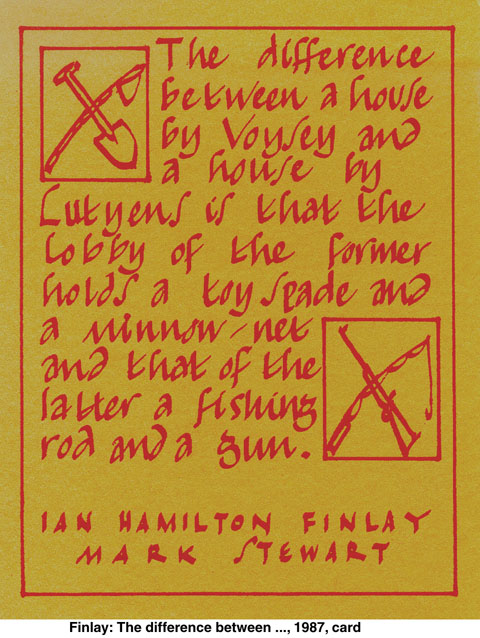 The difference
between a house
by Voysey and
a house by
Lutyens is that the
lobby of the former
holds a toy spade and
a minnow-net
and that of the
latter a fishing
rod and a gun.
IAN HAMILTON FINLAY
MARK STEWART
Finlay: The difference between ..., 1987, card